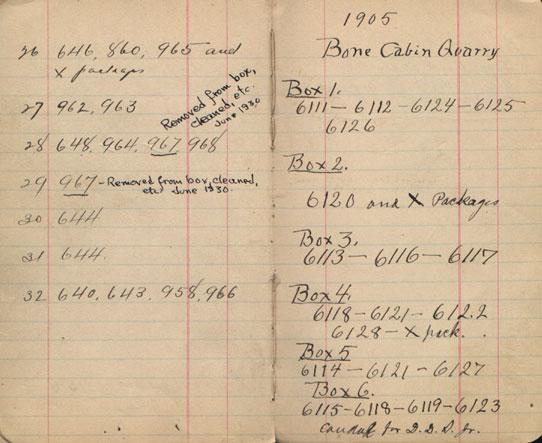 26 646, 860, 965 and
X packages
27 962, 963
Removed from box,
cleaned, etc.
June 1930
28 648, 964, 967 968
29 967 - Removed from box, cleaned,
etc June 1930.
30 644
31 644
32 640, 643, 958, 966
1905
Bone Cabin Quarry
Box 1.
6111 - 6112 - 6124 - 6125
6126
Box 2.
6120 and X Packages
Box 3.
6113 - 6116 - 6117
Box 4.
6118 - 6121 - 6122
6128 - X pack.
Box 5
6114 - 6121 - 6127
Box 6.
6115 - 6118 - 6119 - 6123
for D.D.S. Jr.